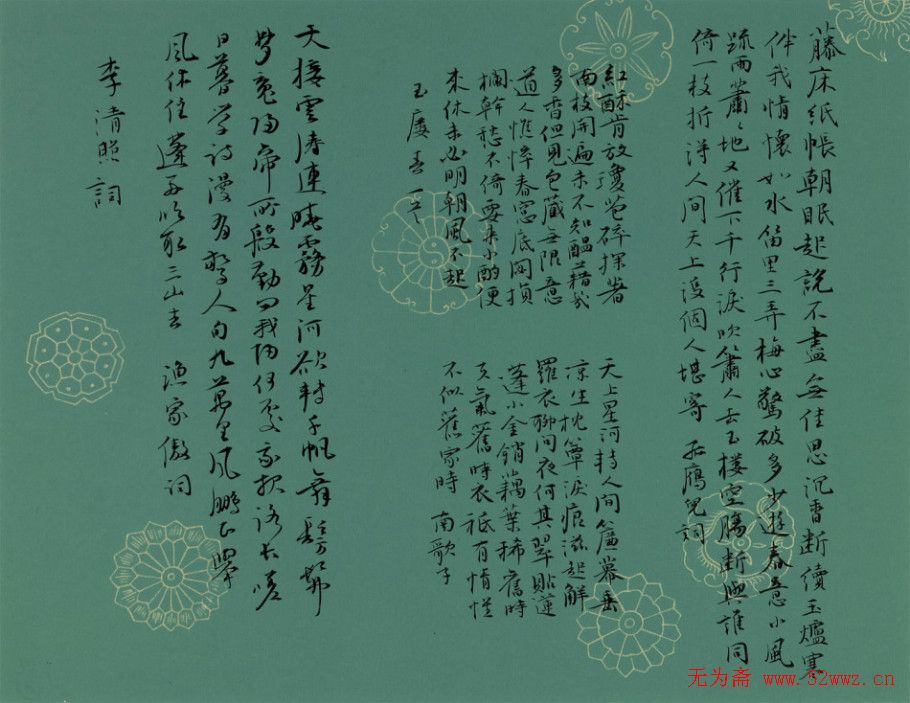 藤床紙帳朝眠起說不盡無佳思沉香斷續玉爐寒
伴我情懷如水笛里三弄梅心驚破多少遊春意小風
疏雨蕭々地又催下千行淚吹簫人去玉樓空腸斷與誰同
倚一枝折得人間天上沒個人堪寄 孤雁兒詞
紅酥肯放瓊苞碎探著
南枝開遍未不知醞藉幾
多香但見包藏無限意
道人憔悴春窗底閑損
欄幹愁不倚要來小酌便
來休未必明朝風不起
玉廔春一首
天上星河轉人間簾幕垂
涼生枕簟淚痕滋起解
羅衣聊問夜何其翠貼蓮
蓬小金銷藕葉稀舊時
天氣舊時衣祗有情懷
不似舊家時 南歌子
天接雲濤連曉霧星河欲轉千帆舞髣髴
夢魂歸帝所殷勤問我歸何處我報路長嗟
日暮學詩漫有驚人句九萬里風鵬正舉
風休住蓬舟吹取三山去 漁家傲詞
李清照詞
无为斋 www.52wwz.cn